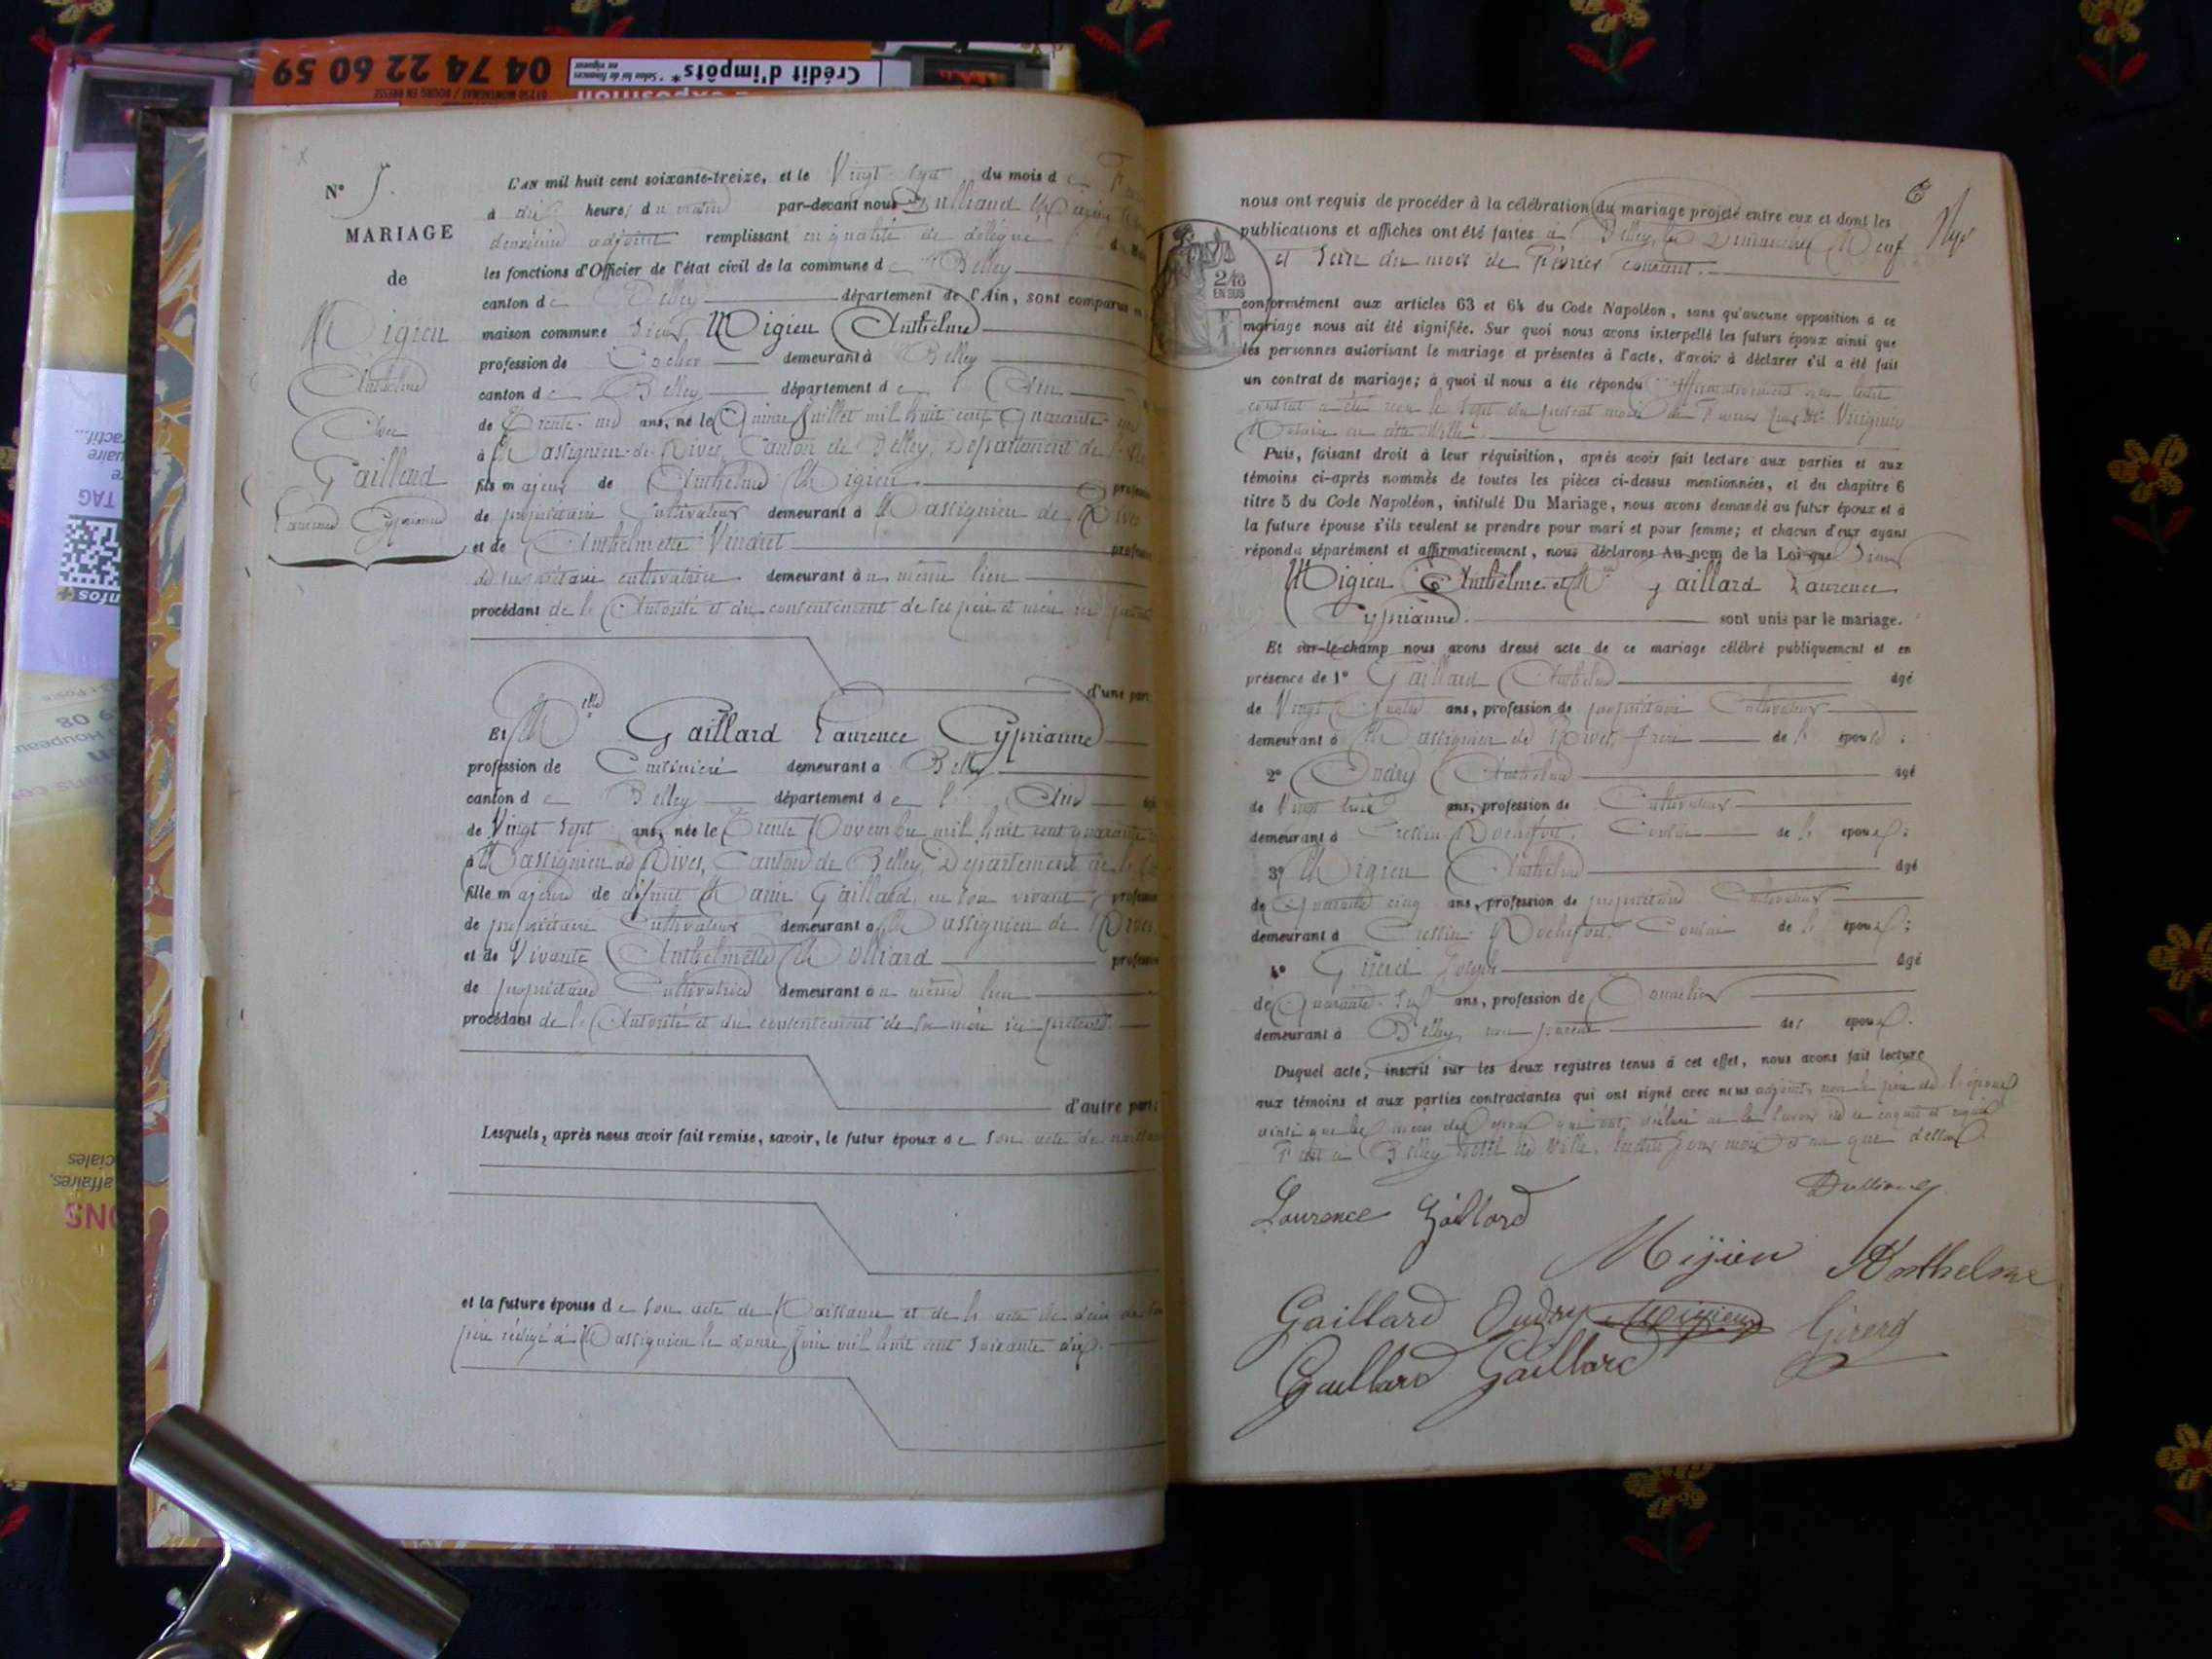 04 74 22 60 59
Crédit d'impôts*
01250 MONTAGNAT / BOURG EN BRESSE
exposition
TAG
infos+
ciales
affaires,
N° 5.
MARIAGE
de
Migieu
Anthelme
Gaillard
Laurence Cyprianne
L'AN mil huit cent soixante-treize, et le Vingt-Sept du mois de
à dix heures du matin par-devant nous
deuxième adjoint remplissant en qualité de délégué
les fonctions d'Officier de l'état civil de la commune de Belley
canton de Belley département de l'Ain, sont comparus
maison commune Sieur Migieu Anthelme
profession de Cocher demeurant à Belley
canton de Belley département de l'Ain
de Trente-un ans, né le Quinze Juillet mil huit cent Quarante-un
à Massignieu-de-Rives, Canton de Belley, Département de l'Ain
fils majeur de Anthelme Migieu
de propriétaire Cultivateur demeurant à Massignieu de Rives
et de Anthelmette Vindret
de propriétaire cultivatrice demeurant au même lieu
procédant de l'Autorité et du consentement de ses père et mère
d'une part
Et Mlle Gaillard Laurence Cyprianne
profession de Cuisinière demeurant à Belley
canton de Belley département de l'Ain
de Vingt Sept ans, née le Trente Novembre mil huit cent quarante
à Massignieu de Rives, Canton de Belley, Département de l'Ain
fille majeure de défunt Marin Gaillard, en son vivant
de propriétaire Cultivateur demeurant à Massignieu de Rives
et de Vivante Anthelmette Molliard
de propriétaire Cultivatrice demeurant au même lieu
procédant de l'Autorité et du consentement de sa mère ici présente.
d'autre part;
Lesquels, après nous avoir fait remise, savoir, le futur époux de son acte de naissance
et la future épouse de son acte de Naissance et de l'acte de décès de son
père rédigé à Massignieu le douze Juin mil huit cent soixante dix.
6
nous ont requis de procéder à la célébration du mariage projeté entre eux et dont les
publications et affiches ont été faites à Belley, les Dimanches Neuf
et Seize du mois de Février courant.
2/10
EN SUS
conformément aux articles 63 et 64 du Code Napoléon, sans qu'aucune opposition à ce
mariage nous ait été signifiée. Sur quoi nous avons interpellé les futurs époux ainsi que
les personnes autorisant le mariage et présentes à l'acte, d'avoir à déclarer s'il a été fait
un contrat de mariage; à quoi il nous a été répondu Affirmativement que leur
contrat a été reçu le Sept du présent mois de Février par Me
Notaire en cette Ville.
Puis, faisant droit à leur réquisition, après avoir fait lecture aux parties et aux
témoins ci-après nommés de toutes les pièces ci-dessus mentionnées, et du chapitre 6
titre 5 du Code Napoléon, intitulé Du Mariage, nous avons demandé au futur époux et à
la future épouse s'ils veulent se prendre pour mari et pour femme; et chacun d'eux ayant
répondu séparément et affirmativement, nous déclarons Au nom de la Loi que Sieur
Migieu Anthelme et Mlle Gaillard Laurence
Cyprianne. sont unis par le mariage.
Et sur-le-champ nous avons dressé acte de ce mariage célébré publiquement et en
présence de 1° Gaillard Anthelme âgé
de Vingt Quatre ans, profession de propriétaire Cultivateur
demeurant à Massignieu de Rives, frère de l'épouse;
2° Oudry Anthelme âgé
de Vingt ans, profession de Cultivateur
demeurant à Cressin-Rochefort, Cousin de l'époux;
3° Migieu Anthelme âgé
de Quarante cinq ans, profession de propriétaire Cultivateur
demeurant à Cressin-Rochefort, Cousin de l'époux;
4° Girerd Joseph âgé
de Quarante-Six ans, profession de Tonnelier
demeurant à Belley, non parent des époux.
Duquel acte, inscrit sur les deux registres tenus à cet effet, nous avons fait lecture
aux témoins et aux parties contractantes qui ont signé avec nous adjoint, non le père de l'époux
ainsi que les mères des époux qui ont déclaré ne le savoir de ce enquis et requis
Fait à Belley hôtel de Ville, lesdits jour mois et an que dessus.
Laurence Gaillard
Migieu Anthelme
Gaillard Oudry Migieu Girerd
Gaillard Gaillard